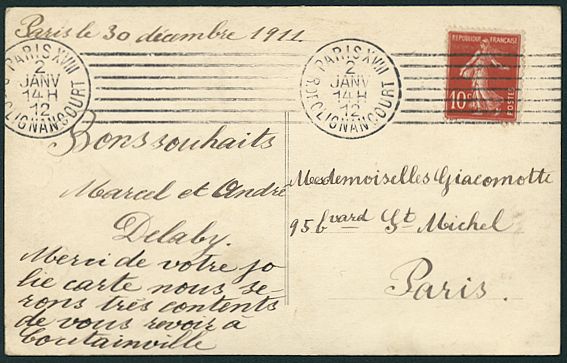 Paris le 30 décembre 1911
PARIS XVIII
2
JANV
14H
12
R. DUC LIGNANCOURT
PARIS XVIII
2
JANV
14H
12
LIGNANCOURT
REPUBLIQUE FRANÇAISE
10c
POSTES
Bons souhaits
Marcel et André
Delaby.
Merci de votre jo
lie carte nous se-
rons très contents
de vous revoir à
Coutainville
Mesdemoiselles Giacomotte
95 bvard St Michel
Paris.